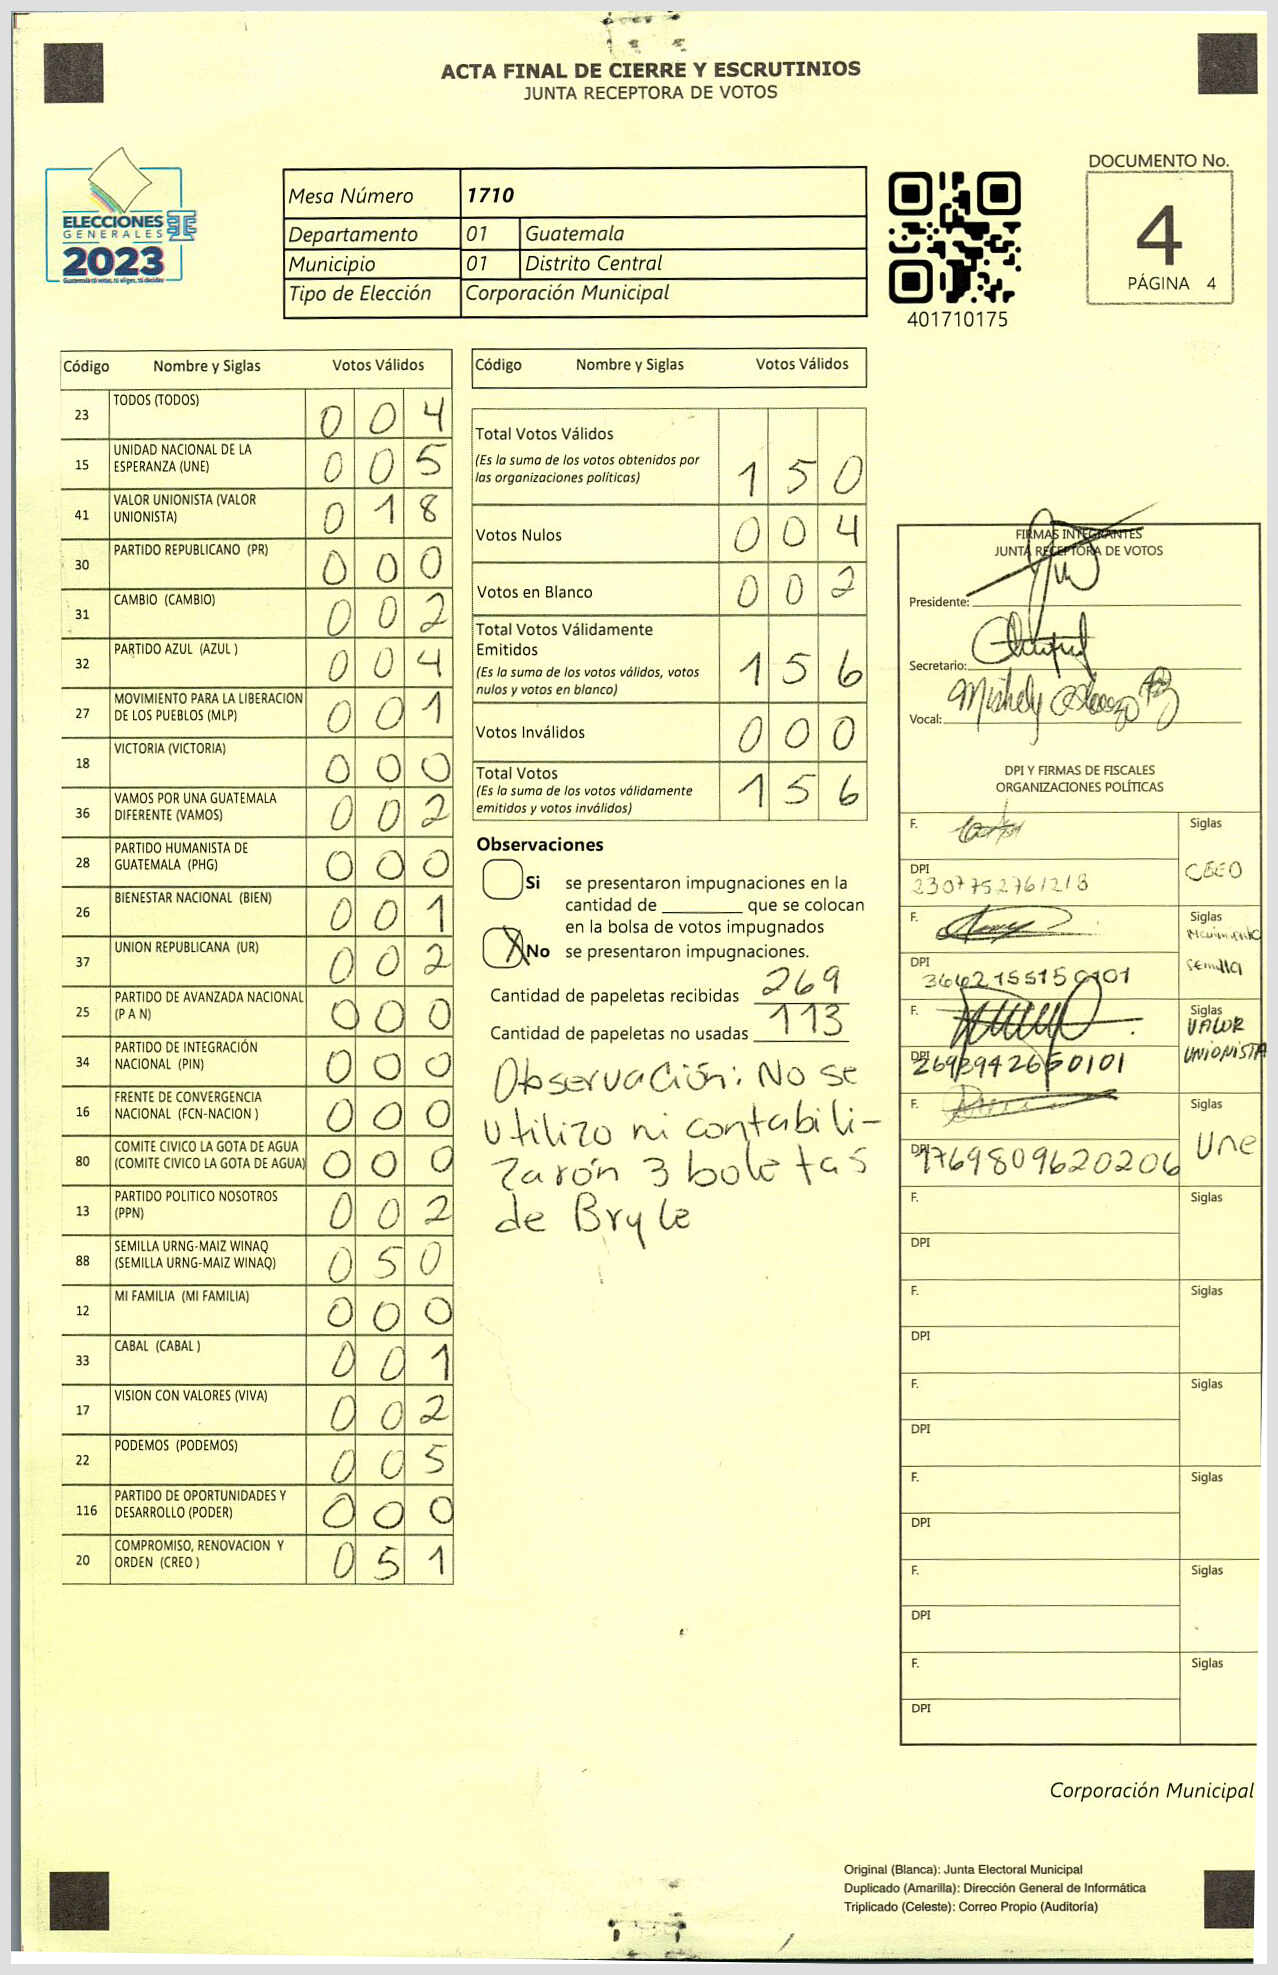 ACTA FINAL DE CIERRE Y ESCRUTINIOS
JUNTA RECEPTORA DE VOTOS
ELECCIONES
GENERALES
2023
Guatemala tú votas, tú eliges, tú decides
Mesa Número 1710
Departamento 01 Guatemala
Municipio 01 Distrito Central
Tipo de Elección Corporación Municipal
401710175
DOCUMENTO No.
4
PÁGINA 4
Código Nombre y Siglas Votos Válidos
23 TODOS (TODOS) 0 0 4
15 UNIDAD NACIONAL DE LA ESPERANZA (UNE) 0 0 5
41 VALOR UNIONISTA (VALOR UNIONISTA) 0 1 8
30 PARTIDO REPUBLICANO (PR) 0 0 0
31 CAMBIO (CAMBIO) 0 0 2
32 PARTIDO AZUL (AZUL ) 0 0 4
27 MOVIMIENTO PARA LA LIBERACION DE LOS PUEBLOS (MLP) 0 0 1
18 VICTORIA (VICTORIA) 0 0 0
36 VAMOS POR UNA GUATEMALA DIFERENTE (VAMOS) 0 0 2
28 PARTIDO HUMANISTA DE GUATEMALA (PHG) 0 0 0
26 BIENESTAR NACIONAL (BIEN) 0 0 1
37 UNION REPUBLICANA (UR) 0 0 2
25 PARTIDO DE AVANZADA NACIONAL (P A N) 0 0 0
34 PARTIDO DE INTEGRACIÓN NACIONAL (PIN) 0 0 0
16 FRENTE DE CONVERGENCIA NACIONAL (FCN-NACION ) 0 0 0
80 COMITE CIVICO LA GOTA DE AGUA (COMITE CIVICO LA GOTA DE AGUA) 0 0 0
13 PARTIDO POLITICO NOSOTROS (PPN) 0 0 2
88 SEMILLA URNG-MAIZ WINAQ (SEMILLA URNG-MAIZ WINAQ) 0 5 0
12 MI FAMILIA (MI FAMILIA) 0 0 0
33 CABAL (CABAL ) 0 0 1
17 VISION CON VALORES (VIVA) 0 0 2
22 PODEMOS (PODEMOS) 0 0 5
116 PARTIDO DE OPORTUNIDADES Y DESARROLLO (PODER) 0 0 0
20 COMPROMISO, RENOVACION Y ORDEN (CREO ) 0 5 1
Código Nombre y Siglas Votos Válidos
Total Votos Válidos
(Es la suma de los votos obtenidos por
las organizaciones políticas) 1 5 0
Votos Nulos 0 0 4
Votos en Blanco 0 0 2
Total Votos Válidamente
Emitidos
(Es la suma de los votos válidos, votos
nulos y votos en blanco) 1 5 6
Votos Inválidos 0 0 0
Total Votos
(Es la suma de los votos válidamente
emitidos y votos inválidos) 1 5 6
Observaciones
Si se presentaron impugnaciones en la
cantidad de ________ que se colocan
en la bolsa de votos impugnados
X No se presentaron impugnaciones.
Cantidad de papeletas recibidas 269
Cantidad de papeletas no usadas 113
Observación: No se
utilizo ni contabili-
zarón 3 boletas
de Bryle
FIRMAS INTEGRANTES
JUNTA RECEPTORA DE VOTOS
Presidente:
Secretario:
Vocal: Mishely
DPI Y FIRMAS DE FISCALES
ORGANIZACIONES POLÍTICAS
F. Siglas
DPI 2307752761218
F. Siglas Movimiento
DPI 3662155150101 semilla
F. Siglas VALOR
DPI 2692942660101 UNIONISTA
F. Siglas Une
DPI 1769809620206
F. Siglas
DPI
F. Siglas
DPI
F. Siglas
DPI
F. Siglas
DPI
F. Siglas
DPI
F. Siglas
DPI
Corporación Municipal
Original (Blanca): Junta Electoral Municipal
Duplicado (Amarilla): Dirección General de Informática
Triplicado (Celeste): Correo Propio (Auditoría)